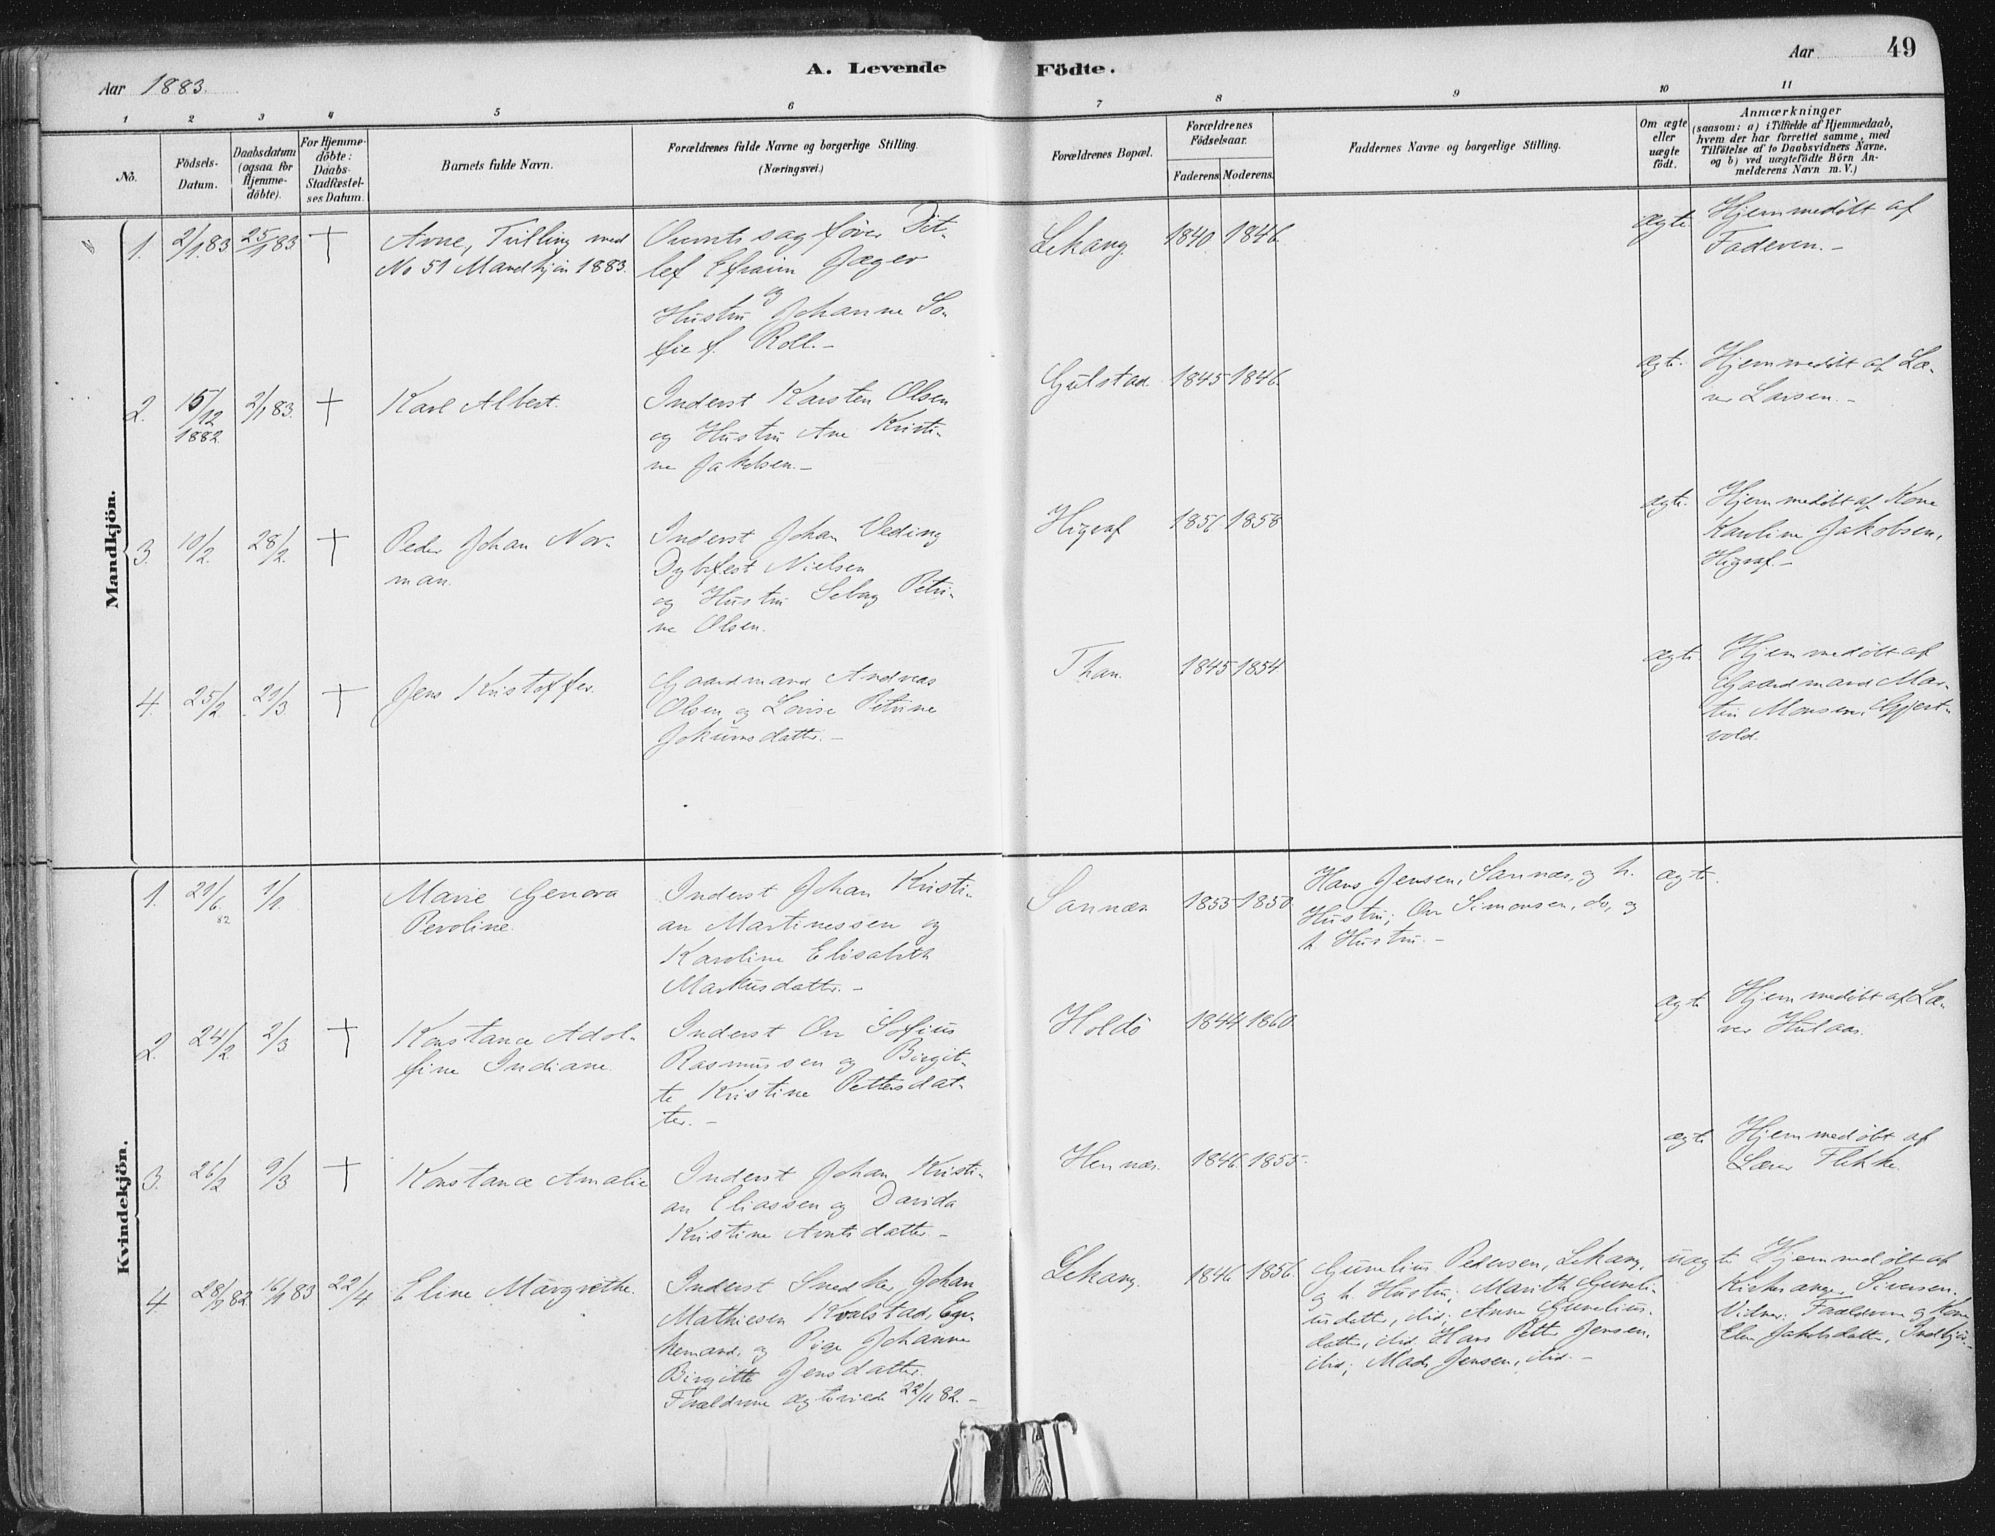 Aar 1883.
A. Levende Födte.
Aar
49
1 2 3 4 5 6 7 8 9 10 11
No.
Födsels-
Datum.
Daabsdatum
(ogsaa for
Hjemme-
döbte).
For Hjemme-
döbte:
Daabs-
Stadfæstel-
ses Datum.
Barnets fulde Navn.
Forældrenes fulde Navne og borgerlige Stilling.
(Næringsvei.)
Forældrenes Bopæl.
Forældrenes
Födselsaar.
Faderens. Moderens.
Faddernes Navne og borgerlige Stilling.
Om ægte
eller
uægte
födt.
Anmærkninger
(saasom: a) i Tilfælde af Hjemmedaab,
hvem der har forrettet samme, med
Tilföielse af to Daabsvidners Navne,
og b) ved uægtefödte Börn An-
melderens Navn m. V.)
Mandkjön.
1. 2/1 83. 25/1 83 †
Arne, Tvilling med
No 51 Mandkjön 1883.
Overretssagfører Dit-
lef Efraim Jæger
og
Hustru Johanne So-
fie f. Roll.-
Lekang. 1840 1846.
ægte
Hjemmedøbt af
Faderen.-
2. 15/12 1882. 2/1 83. †
Karl Albert.
Inderst Karsten Olsen
og Hustru Ane Kristi-
ne Jakobsen.-
Gulstad. 1845 1846.
ægte.
Hjemmedøbt af Læ-
rer Larsen.-
3. 10/2. 28/2. †
Peder Johan Nor-
man.
Inderst Johan Oeding
Dybfest Nielsen
og Hustru Petri-
ne Olsen.
Higraf 1856 1858
ægte.
Hjemmedøbt af Kone
Karoline Jakobsen,
Higraf.-
4. 25/2 21/3. †
Jens Kristoffer.
Gaardmand Andreas
Olsen og Lovise Petrine
Jokumsdatter.-
Than. 1845 1854
ægte
Hjemmedøbt af
Gaardmand Mar-
tin Monsen,
vold.
Kvindekjön.
1. 21/6 82 1/1
Marie Genova
Peroline.
Inderst Johan Kristi-
an Martinessen og
Karoline Elisabeth
Markusdatter.-
Sannæs 1853 1850.
Hans Jensen, Sannæs, og h.
Hustru; Ole Simonsen, do, og
h. Hustru.-
ægte.
2. 24/2 2/3 †
Konstance Adol-
fine Indiane.
Inderst Ole Sofius
Rasmussen og Birgit-
te Kristine Pettersdat-
ter.-
Holdö 1844 1860.
ægte
Hjemmedøbt af Læ-
rer Hulaas.
3. 26/2 9/3 †
Konstance Amalie
Inderst Johan Kristi-
an Eliassen og Davida
Kristine Arntsdatter.-
Hennæs. 1846. 1855.
ægte
Hjemmedøbt af
Lærer Flekke.
4 28/9 82 16/1 83 22/4
Eline Margrethe.
Inderst Snedker Johan
Mathiesen Kvalstad, En-
kemand, og Pige Johanne
Birgitte Jensdatter.
Forældrene ægteviede 22/11 82.-
Lekang. 1846. 1856.
Gunelius Pedersen, Lekang,
og h. Hustru; Marith Guneli-
usdatter, ibid; Anne Gunelius-
datter, ibid. Hans Petter Jensen,
ibid; Mads Jensen, ibid.-
uægte
Hjemmedøbt af
Kirkesanger Siversen.
Vidner: Faderen og Kone
Elen Jakobsdatter,